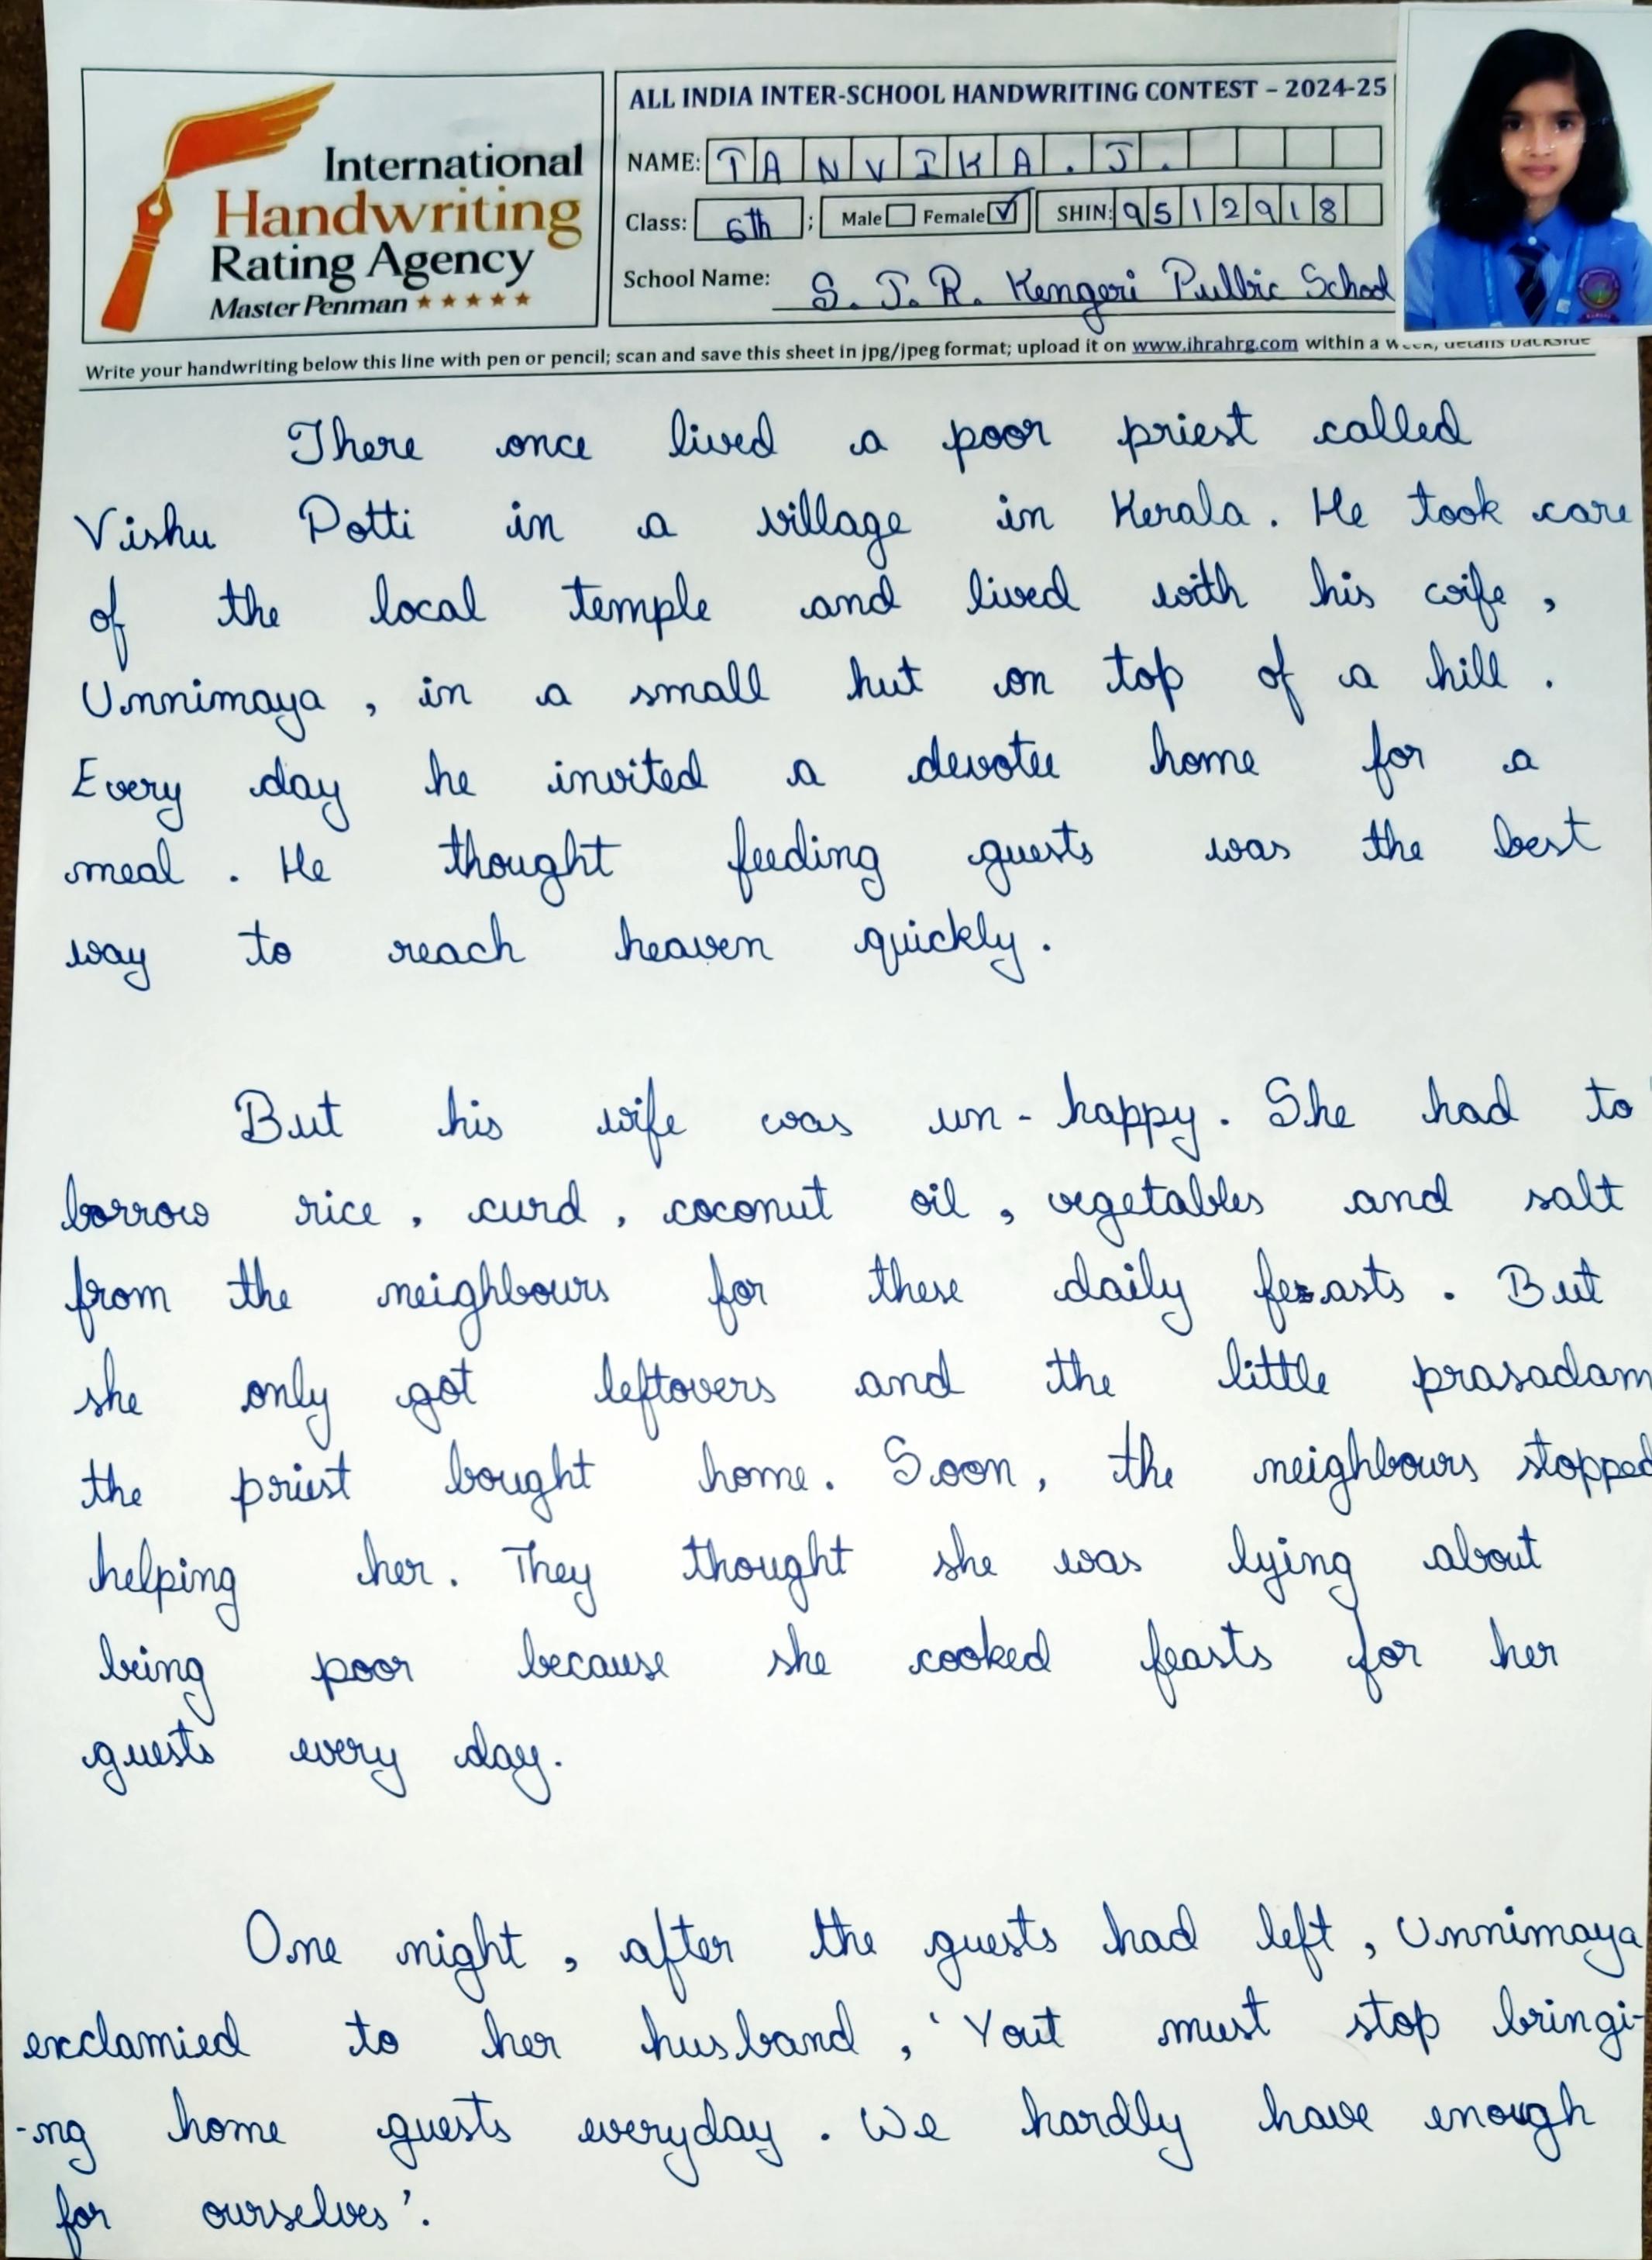 International
Handwriting
Rating Agency
Master Penman ★★★★★
ALL INDIA INTER-SCHOOL HANDWRITING CONTEST – 2024-25
NAME: TANVIKA.J.
Class: 6th ; Male ☐ Female ☑ SHIN: 9512918
School Name: S. J. R. Kengeri Pulbic School
Write your handwriting below this line with pen or pencil; scan and save this sheet in jpg/jpeg format; upload it on www.ihrahrg.com within a week, details backside
There once lived a poor priest called
Vishu Potti in a village in Kerala. He took care
of the local temple and lived with his wife,
Unnimaya, in a small hut on top of a hill.
Every day he invited a devotee home for a
meal. He thought feeding guests was the best
way to reach heaven quickly.
But his wife was un-happy. She had to
borrow rice, curd, coconut oil, vegetables and salt
from the neighbours for these daily feasts. But
she only got leftovers and the little prasadam
the priest bought home. Soon, the neighbours stopped
helping her. They thought she was lying about
being poor because she cooked feasts for her
guests every day.
One night, after the guests had left, Unnimaya
exclamied to her husband, 'Yout must stop bringi-
-ng home guests everyday. We hardly have enough
for ourselves'.